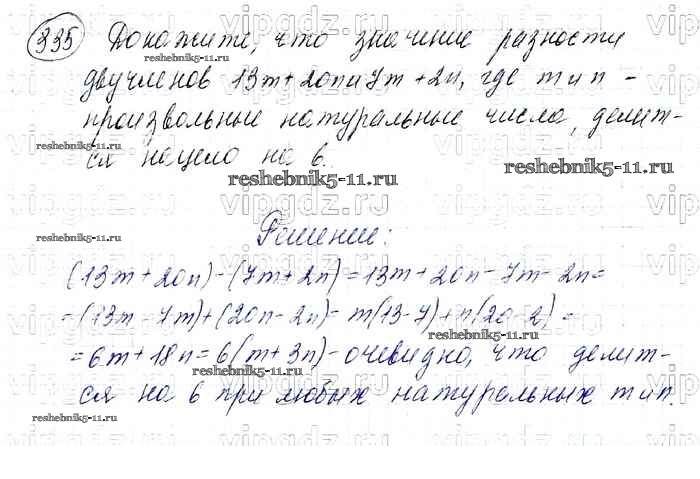 335 Докажите, что значение разности
двучленов 13m + 20n и 7m + 2n, где m и n -
произвольные натуральные числа, делит-
ся нацело на 6.
Решение:
(13m + 20n) - (7m + 2n) = 13m + 20n - 7m - 2n =
= (13m - 7m) + (20n - 2n) = m(13 - 7) + n(20 - 2) =
= 6m + 18n = 6(m + 3n) - очевидно, что делит-
ся на 6 при любых натуральных m и n.
reshebnik5-11.ru
vipgdz.ru